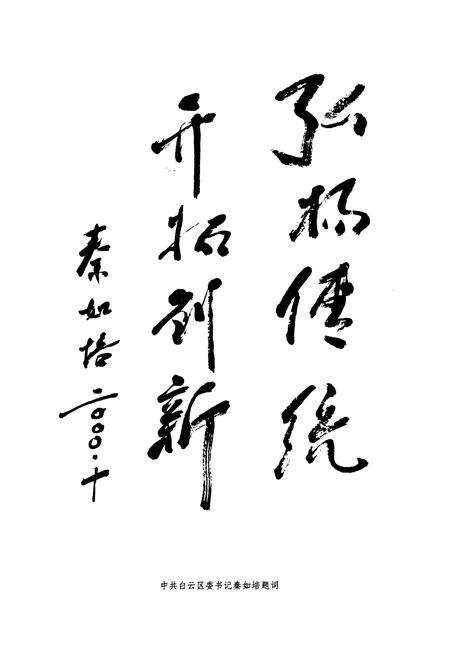 弘扬传统
开拓创新
秦如培
二〇〇〇·十
中共白云区委书记秦如培题词